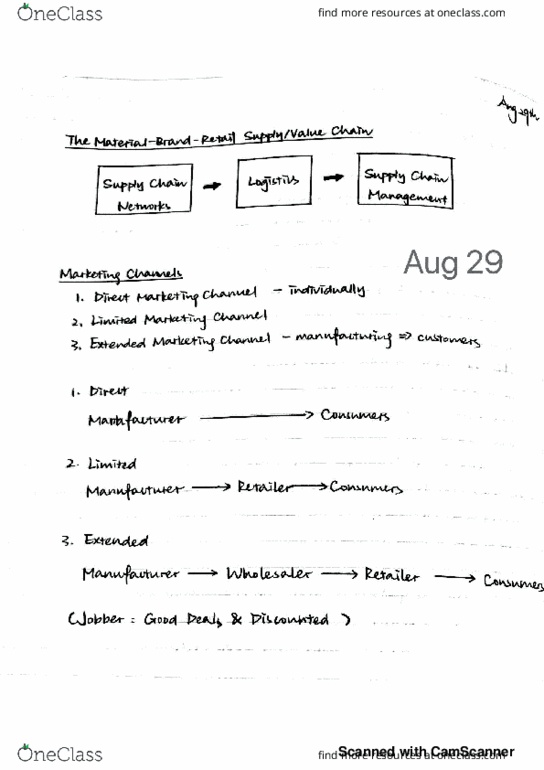 OneClass
find more resources at oneclass.com
Aug 29th
The Material-Brand-Retail Supply/Value Chain
Supply Chain Networks → Logistics → Supply Chain Management
Aug 29
Marketing Channels
1. Direct Marketing Channel - individually
2. Limited Marketing Channel
3. Extended Marketing Channel - mannfacturing ⇒ customers
1. Direct
Manufacturer → Consumers
2. Limited
Mannfacturer → Retailer → Consumers
3. Extended
Manufacturer → Wholesaler → Retailer → Consumers
(Jobber: Good Deals & Discounted )
OneClass
find more resources at oneclass.com
Scanned with CamScanner